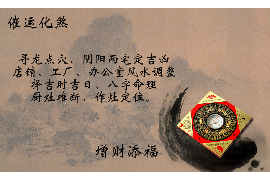 催运化煞
寻龙点穴、阴阳两宅定吉凶
店销、工厂、办公室风水调整
择吉时吉日、八字命理
厨灶堆断、作灶定位。
增财添福